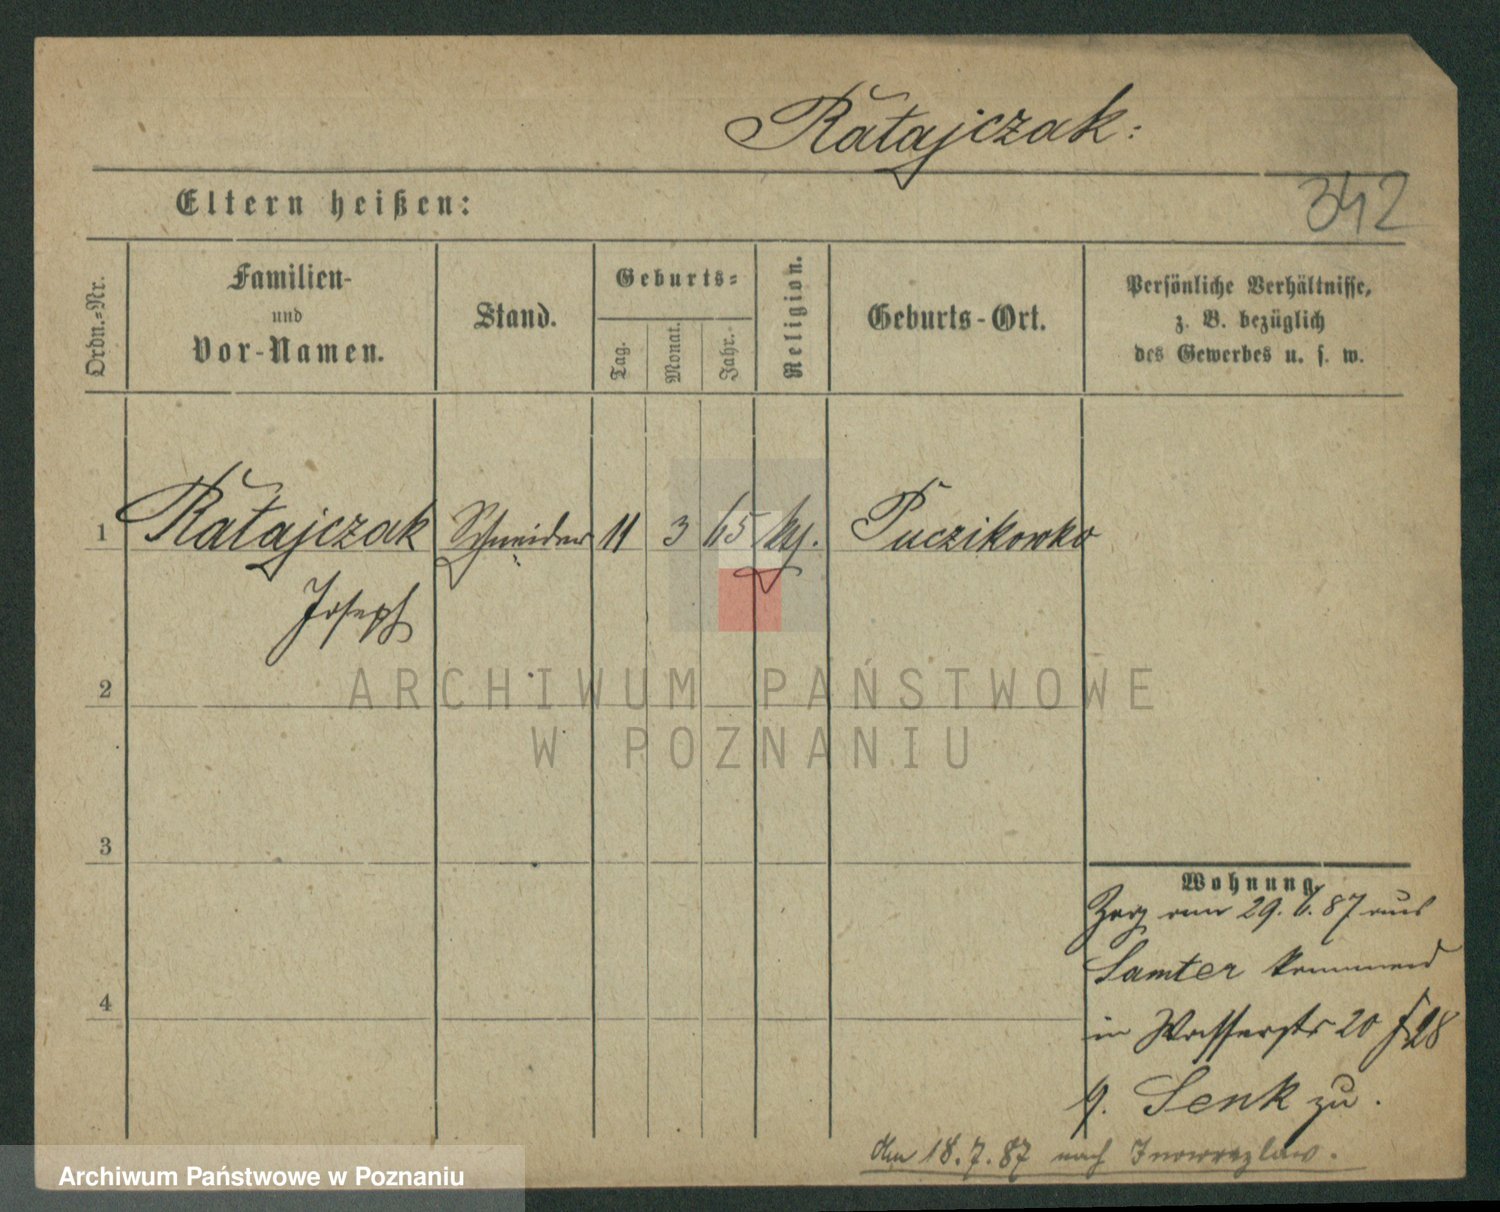 Ratajczak:
Eltern heißen:
342
Ordn.-Nr.
Familien-
und
Vor-Namen.
Stand.
Geburts-
Tag.
Monat.
Jahr.
Religion.
Geburts-Ort.
Persönliche Verhältnisse,
z. B. bezüglich
des Gewerbes u. s. w.
1 Ratajczak Schneider 11 3 65 kth. Puczikowko
Joseph
2
ARCHIWUM PAŃSTWOWE
W POZNANIU
3
4
Wohnung.
Zog am 29. 6. 87 aus
Samter kommend
in Wasserstr 20
Senk zu.
den 18. 7. 87 nach Inowrazlaw.
Archiwum Państwowe w Poznaniu